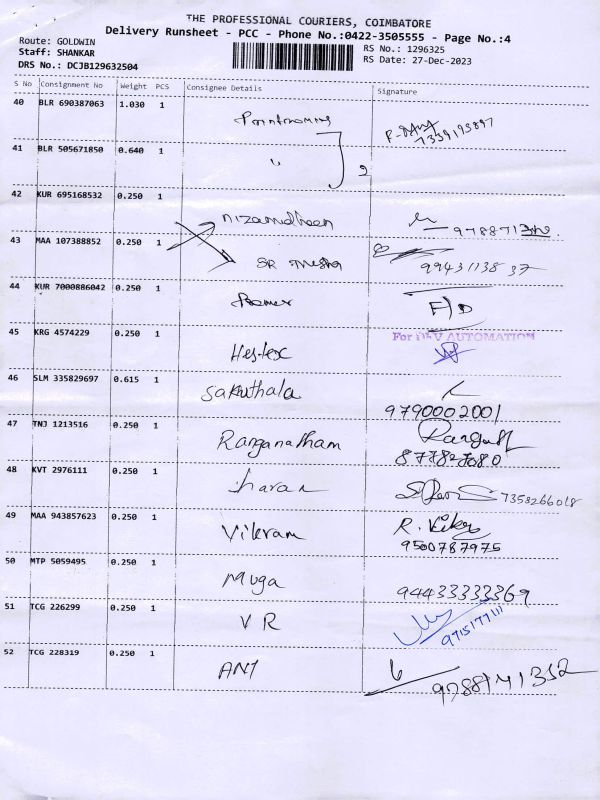 THE PROFESSIONAL COURIERS, COIMBATORE
Delivery Runsheet - PCC - Phone No.:0422-3505555 - Page No.:4
Route: GOLDWIN
Staff: SHANKAR
DRS No.: DCJB129632504
RS No.: 1296325
RS Date: 27-Dec-2023
S No Consignment No Weight PCS Consignee Details Signature
40 BLR 690387063 1.030 1
7339193897
41 BLR 505671850 0.640 1
" 2
42 KUR 695168532 0.250 1
Nizamudheen
43 MAA 107388852 0.250 1
SR 9943113837
44 KUR 7000886042 0.250 1
F/D
45 KRG 4574229 0.250 1
For DLV AUTOMATION
Hes-tex
46 SLM 335829697 0.615 1
Sakuthala
9790002001
47 TNJ 1213516 0.250 1
Ranganatham
48 KVT 2976111 0.250 1
7358266018
49 MAA 943857623 0.250 1
Vikram R. Vikey
9500787975
50 MTP 5059495 0.250 1
Muga 94433333369
51 TCG 226299 0.250 1
V R 9715177111
52 TCG 228319 0.250 1
ANT
9788141352